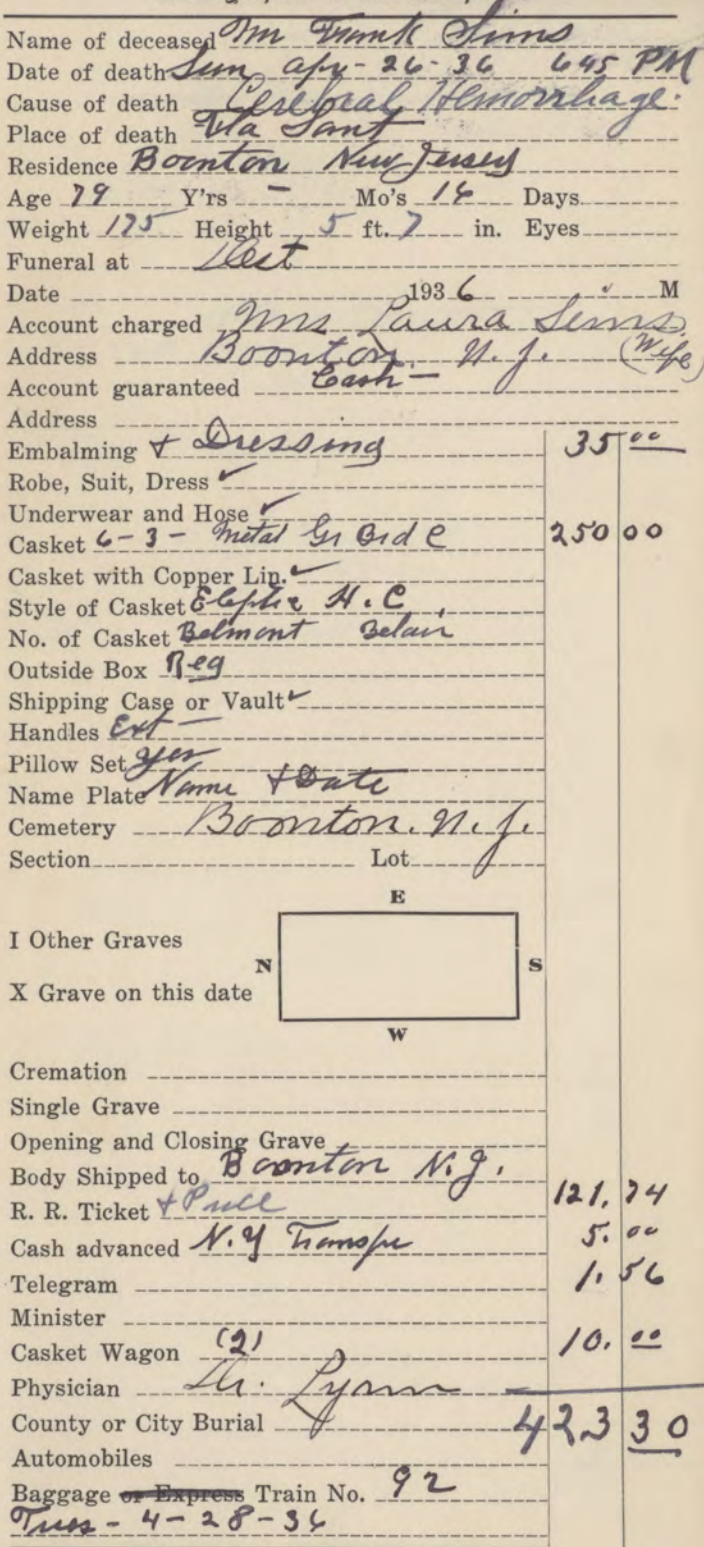 Name of deceased Mr Frank Sims
Date of death Sun Apr - 26 - 36 645 PM
Cause of death Cerebral Hemorrhage.
Place of death Fla Sant
Residence Boonton New Jersey
Age 79 Y'rs - Mo's 16 Days
Weight 175 Height 5 ft. 7 in. Eyes
Funeral at
Date 1936 M
Account charged Mrs Laura Sims
Address Boonton. N.J. (Wife)
Account guaranteed Cash -
Address
Embalming + Dressing 35 00
Robe, Suit, Dress ✓
Underwear and Hose ✓
Casket 6 - 3 - Metal Gr Brd C 250 00
Casket with Copper Lin. ✓
Style of Casket H.C.
No. of Casket Belmont Belair
Outside Box Reg
Shipping Case or Vault ✓
Handles Ext -
Pillow Set yes
Name Plate Name + Date
Cemetery Boonton. N.J.
Section Lot
E
I Other Graves
N S
X Grave on this date
W
Cremation
Single Grave
Opening and Closing Grave
Body Shipped to Boonton N.J.
R. R. Ticket + Pull 121.74
Cash advanced N.Y Transfer 5.00
Telegram 1.56
Minister
Casket Wagon (2) 10.00
Physician Dr. Lynn
County or City Burial 423 30
Automobiles
Baggage or Express Train No. 92
Tues - 4 - 28 - 36